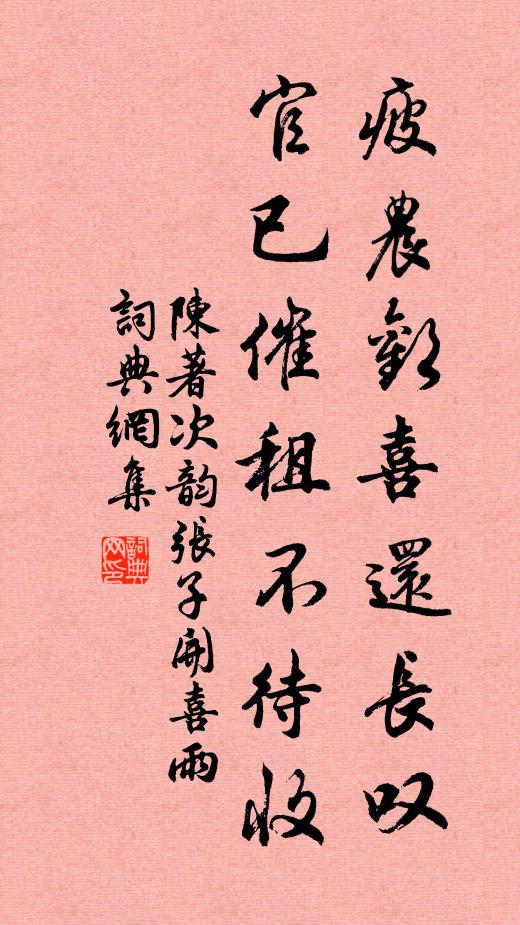 疲農歡喜還長叹
官已催租不待收
陳著次韵張子開喜雨
詞典網集
詞典网印